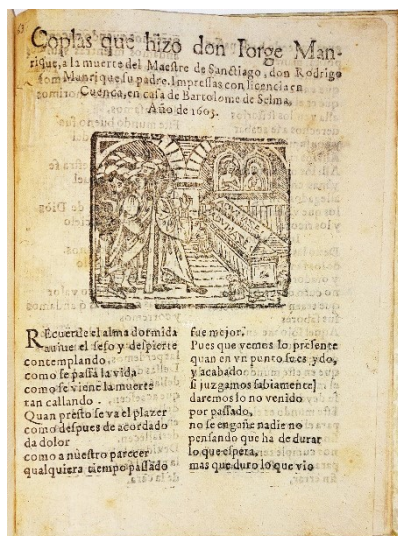 Coplas que hizo don Iorge Man-
rique, a la muerte del Maestre de Sanctiago, don Rodrigo
Manrique, su padre. Impressas con licencia en
Cuenca, en casa de Bartolome de Selma,
Año de 1603.
REcuerde el alma dormida
auiue el seso y despierte
contemplando,
como se passa la vida
como se viene la muerte
tan callando.
Quan presto se va el plazer
como despues de acordado
da dolor
como a nuestro parecer
qualquiera tiempo passado
fue mejor.
Pues que vemos lo presente
quan en vn punto se es ydo,
y acabado
si juzgamos sabiamente
daremos lo no venido
por passado,
no se engañe nadie no
pensando que ha de durar
lo que espera,
mas que duro lo que vio